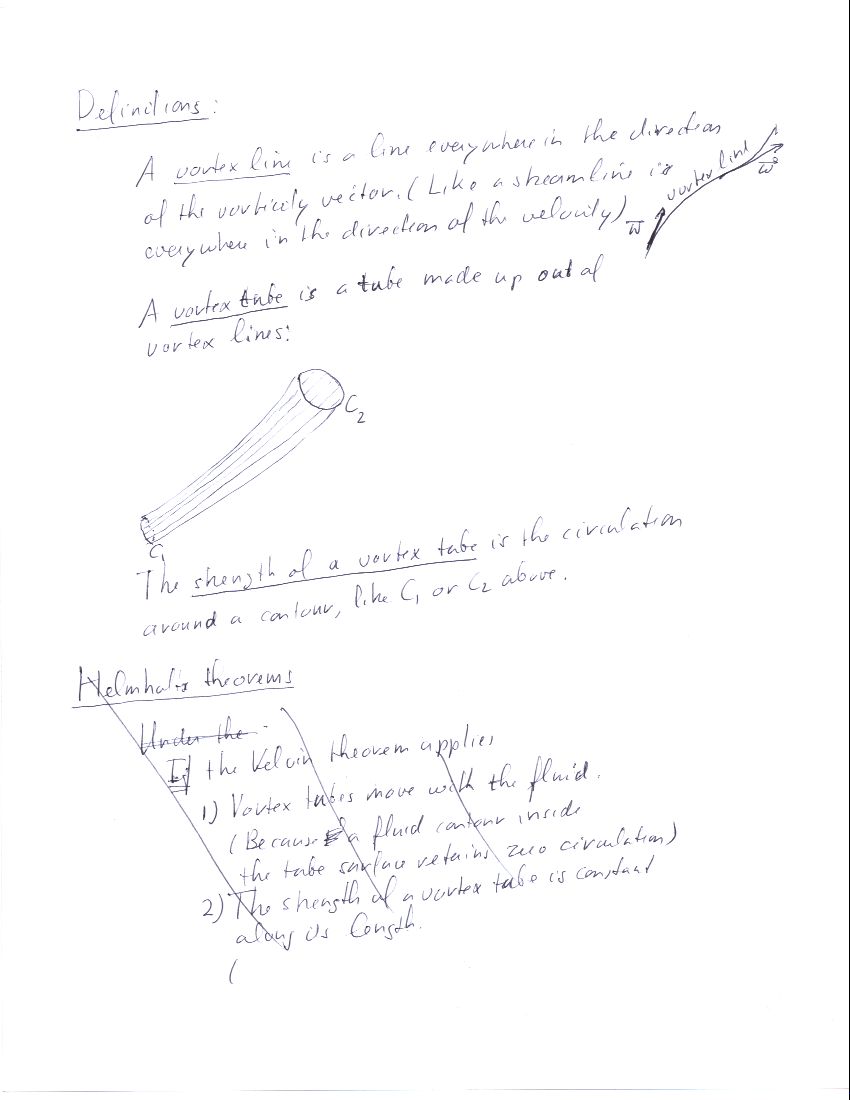 Definitions:
A vortex line is a line everywhere in the direction
of the vorticity vector. (Like a streamline is
everywhere in the direction of the velocity)
vortex line
ω⃗
ω⃗
A vortex tube is a tube made up out of
vortex lines:
C2
C1
The strength of a vortex tube is the circulation
around a contour, like C1 or C2 above.
Helmholtz theorems
Under the
If the Kelvin theorem applies
1) Vortex tubes move with the fluid.
(Because a fluid contour inside
the tube surface retains zero circulation)
2) The strength of a vortex tube is constant
along its length.
(